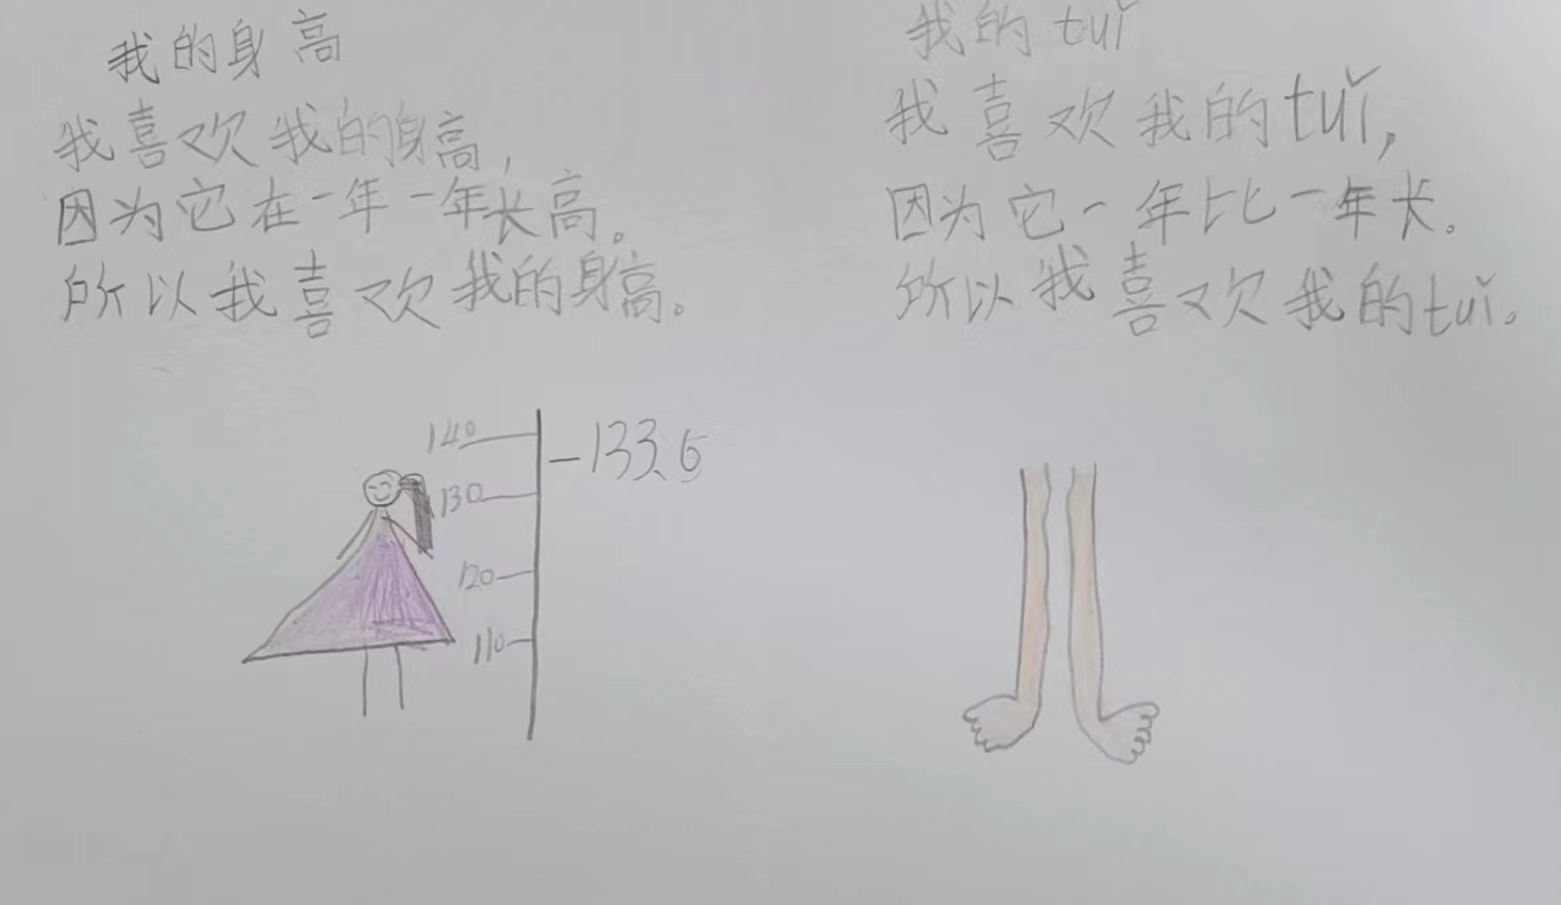 我的身高
我喜欢我的身高,
因为它在一年一年长高。
所以我喜欢我的身高。
140
-133.6
130
120
110
我的tuǐ
我喜欢我的tuǐ,
因为它一年比一年长。
所以我喜欢我的tuǐ。